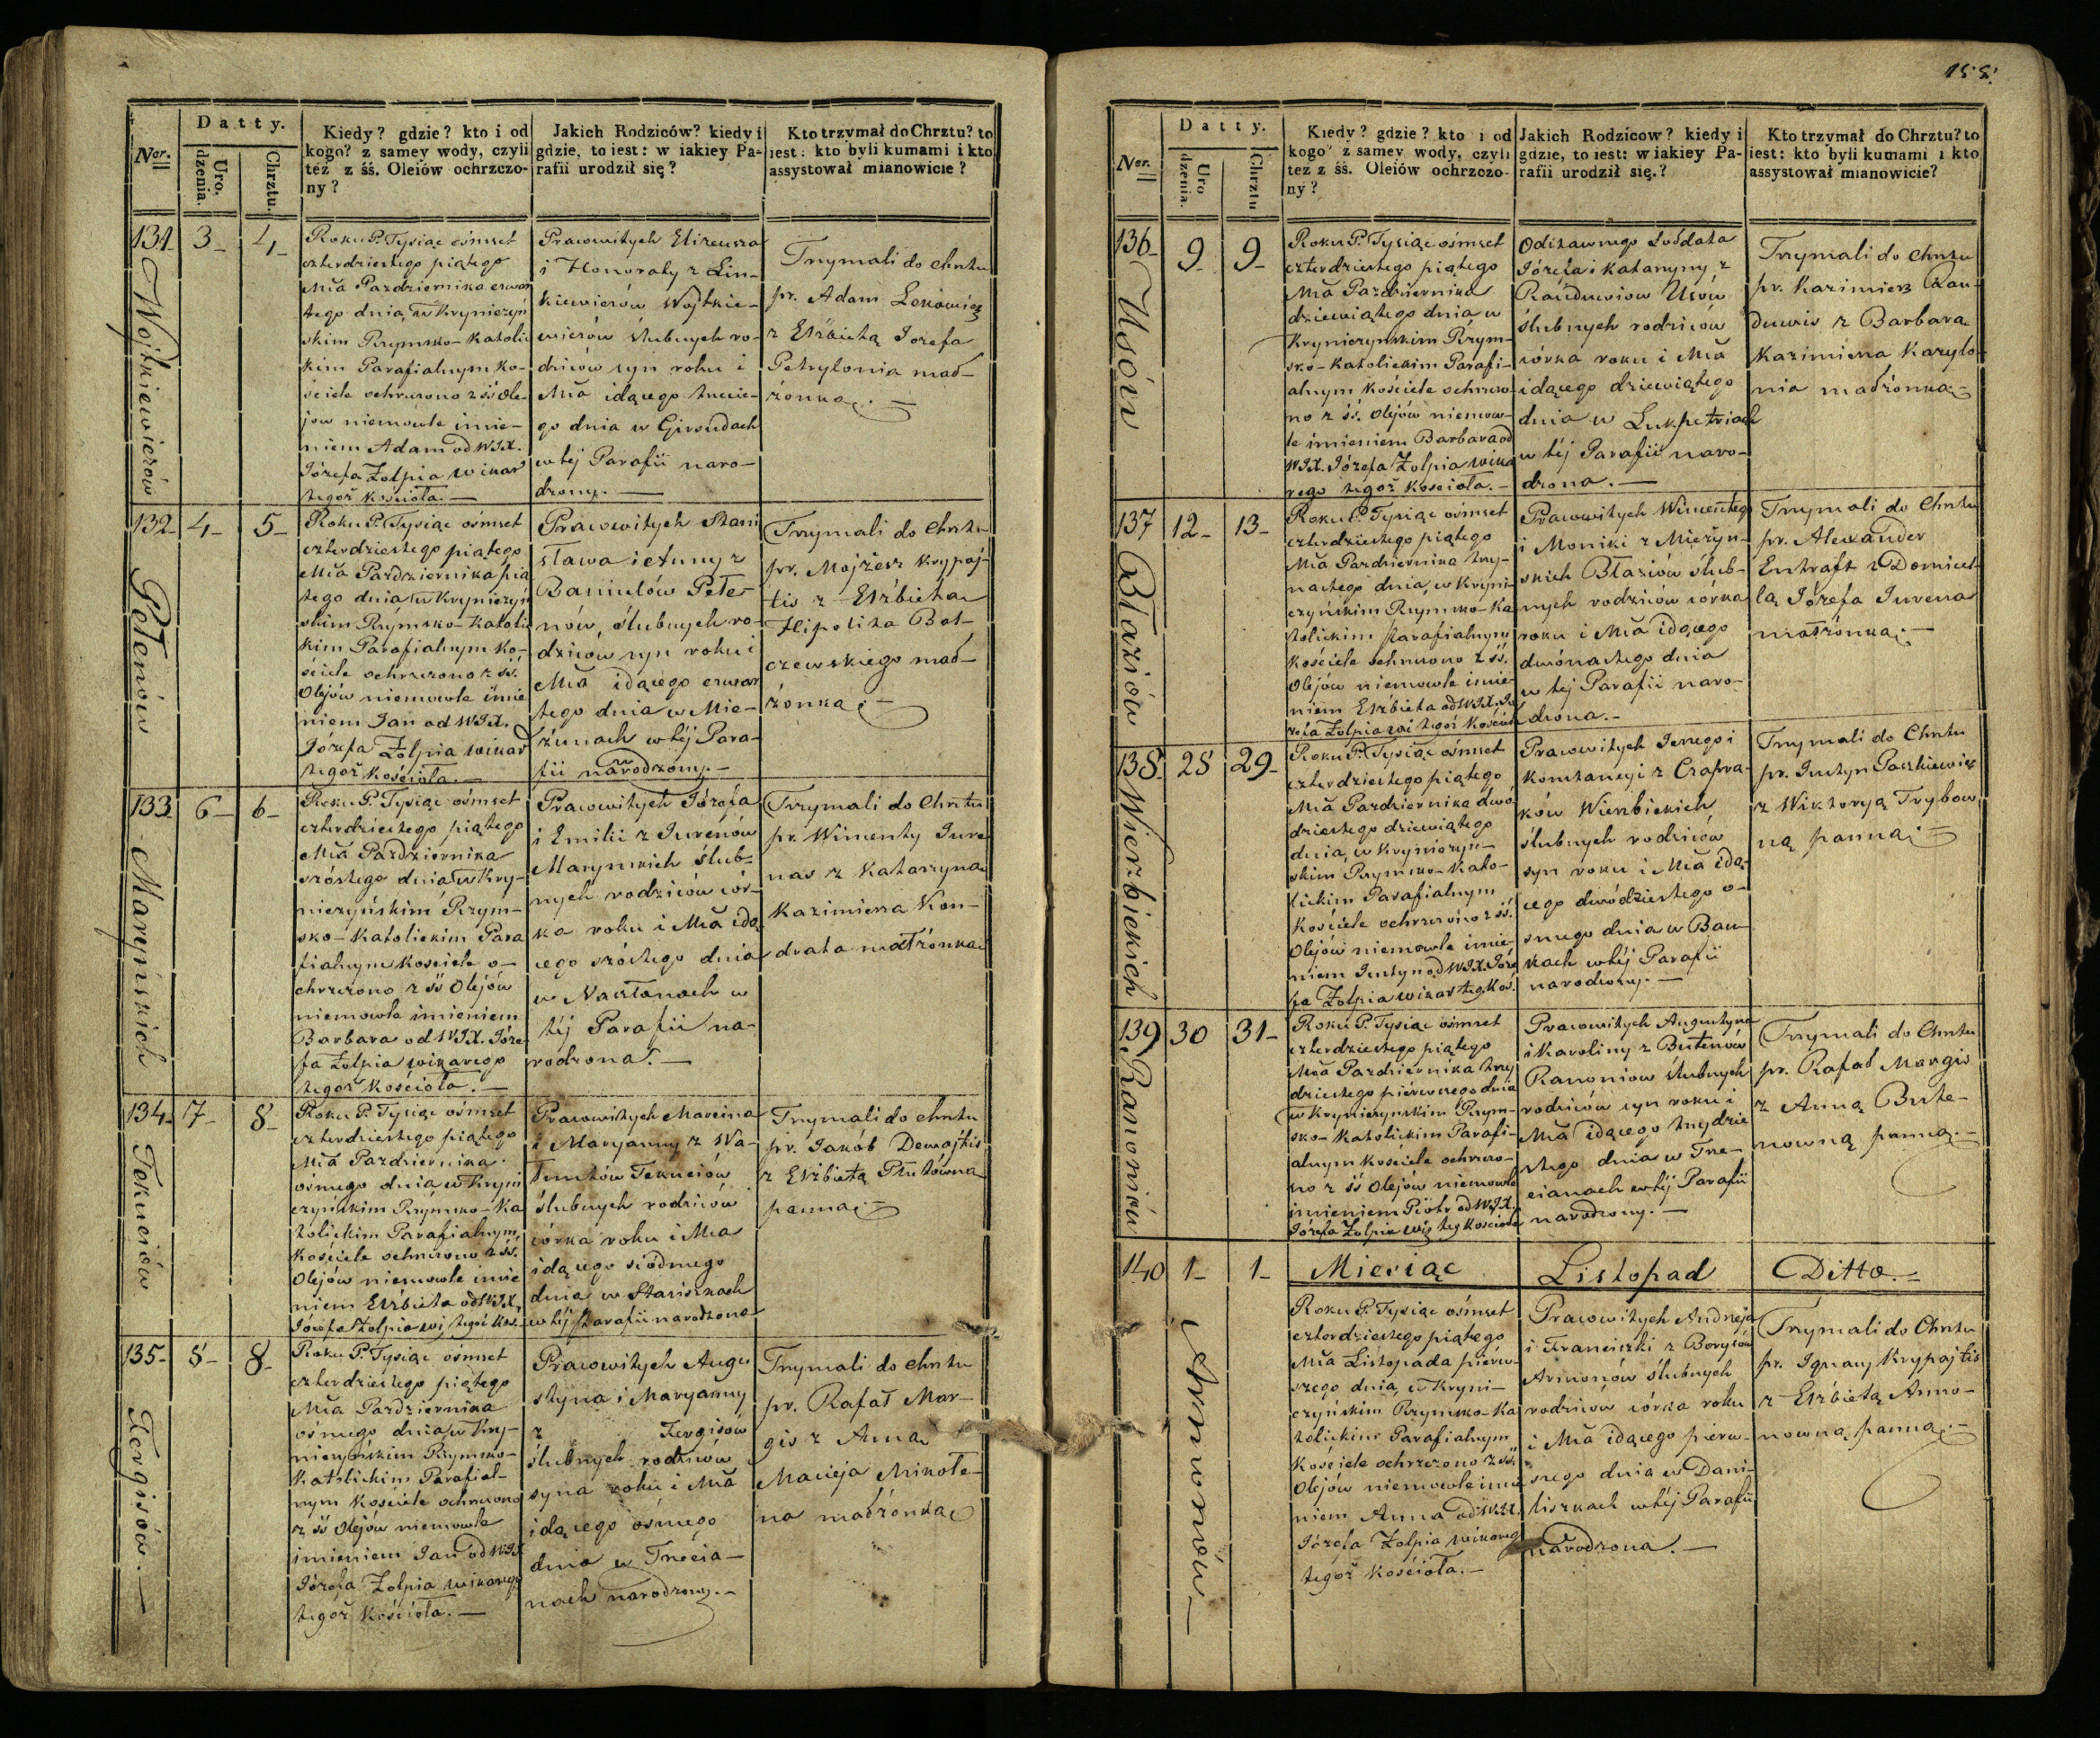 155.
Datty.
Ner.
Uro.
dzenia.
Chrztu.
Kiedy? gdzie? kto i od
kogo? z samey wody, czyli
też z śś. Oleiów ochrzczo-
ny?
Jakich Rodziców? kiedy i
gdzie, to iest: w iakiey Pa-
rafii urodził się?
Kto trzymał do Chrztu? to
iest: kto byli kumami i kto
assystował mianowicie?
131 3- 4-
Wojtkiewiczów
Roku P. Tysiąc ośmset
czterdziestego piątego
Mca Pazdziernika czwar
tego dnia, w Kryniczyń
skim Rzymsko-Katolic
kim Parafialnym Ko-
ściele ochrzczono z śś Ole-
jów niemówle imie-
niem Adam od WJX.
Józefa Żołpia wikar
tegoż kościoła.—
Pracowitych Elizeusza
i Honoraty z Lin-
kiewiczów Wojtkie-
wiczów ślubnych ro-
dziców syn roku i
Mca idącego trzecie-
go dnia w Girsudach
w téj Parafii naro-
dzony.—
Trzymali do chrztu
pr. Adam
z Elżbietą Jozefa
Petrylonia mał-
żonką.—
132- 4- 5-
Petenów
Roku P. Tysiąc ośmset
czterdziestego piątego
Mca Pazdziernika pią
tego dnia w Krynieżyń
skim Rzymsko-Katolic
kim Parafialnym Ko-
ściele ochrzczono z śś.
Olejów niemowle imie
niem Jan od WJX.
Józefa Żołpia wikar
tegoż kościoła.—
Pracowitych Stani
sława i Anny z
Baniulów Pete-
nów, ślubnych ro-
dziców syn roku i
Mca idącego czwar
tego dnia w Mie-
żunach w téj Para-
fii narodzony.—
Trzymali do chrztu
pr. Mojżesz Krypaj-
tis z Elżbietą
Hipolita Bal-
czewskiego mał-
żonką.—
133 6- 6-
Maryńskich
Roku P. Tysiąc ośmset
czterdziestego piątego
Mca Pazdziernika
szóstego dnia w Kry-
nieżyńskim Rzym-
sko-Katolickim Para
fialnym kościele o-
chrzczono z śś Olejów
niemowle imieniem
Barbara od WJX. Józe
fa Żołpia wikarego
tegoż kościoła.—
Pracowitych Józefa
i Emilii z Jurenów
Marynskich ślub-
nych rodziców cór-
ka roku i Mca idą
cego szóstego dnia
w Nasztanach w
téj Parafii na-
rodzona.—
Trzymali do chrztu
pr. Wincenty Jure
nas z Katarzyną
Kazimierza Kon-
drata małżonką
134- 7- 8-
Tekuciów
Roku P. Tysiąc ośmset
czterdziestego piątego
Mca Pazdziernika
ośmego dnia w Kryni
czyńskim Rzymsko-Ka
tolickim Parafialnym
kościele ochrzczono z śś.
Olejów niemowle imie
niem Elżbieta od WJX
Józefa Żołpia wi, tegoż koś.
Pracowitych Marcina
i Maryanny z Wa-
luntów Tekuciów
ślubnych rodziców
córka roku i Mca
idącego siódmego
dnia w Stariszkach
w téj Parafii narodzona
Trzymali do chrztu
pr. Jakób Dewajtis
z Elżbietą Plutówną
panną.—
135- 8- 8-
Kergisów.—
Roku P. Tysiąc ośmset
czterdziestego piątego
Mca Pazdziernika
ośmego dnia w Kry-
nieżyńskim Rzymsko-
katolickim Parafial-
nym kościele ochrzczono
z śś Olejów niemowle
imieniem Jan od WJX.
Józefa Żołpia wikarego
tegoż kościoła.—
Pracowitych Augu
styna i Maryanny
z Kergisów
ślubnych rodziców
syna roku i Mca
idącego ósmego
dnia w Trecia-
nach narodzony.—
Trzymali do chrztu
pr. Rafał Mar-
gis z Anną
Macieja Mikołe-
na małżonką
Datty.
Ner.
Uro
dzenia.
Chrztu
Kiedy? gdzie? kto i od
kogo? z samey wody, czyli
też z śś. Oleiów ochrzczo-
ny?
Jakich Rodziców? kiedy i
gdzie, to iest: w iakiey Pa-
rafii urodził się.?
Kto trzymał do Chrztu? to
iest: kto byli kumami i kto
assystował mianowicie?
136- 9- 9-
Usów
Roku P. Tysiąc ośmset
czterdziestego piątego
Mca Pazdziernika
dziewiątego dnia w
Krynieżynskim Rzym-
sko-katolickim Parafi-
alnym kościele ochrzczo-
no z śś. Olejów niemow-
le imieniem Barbara od
WJX. Józefa Żołpia wika
rego tegoż kościoła.—
Odstawnego Sołdata
Józefa i Katarzyny z
Rauduwiow Usów
ślubnych rodziców
córka roku i Mca
idącego dziewiątego
dnia w Lukpetriach
w téj Parafii naro-
dzona.—
Trzymali do chrztu
pr. Kazimierz Rau-
duwis z Barbarą
Kazimierza Karylo-
nia małżonką.
137 12- 13-
Błaziów
Roku P. Tysiąc ośmset
czterdziestego piątego
Mca Pazdziernika trzy-
nastego dnia, w Kryni-
czyńskim Rzymsko-Ka
tolickim Parafialnym
kościele ochrzczono z śś.
Olejów niemowle imie-
niem Elżbieta od WJX. Jó
zefa Żołpia wi tegoż kościoła
Pracowitych Wincentego
i Moniki z Mieżyn-
skich Błaziów ślub-
nych rodziców córka
roku i Mca idącego
dwónastego dnia
w téj Parafii naro-
dzona.—
Trzymali do chrztu
pr. Alexander
Entraft z Domicel-
lą Józefa Jurena
małżonką.—
138. 28 29-
Wierzbickich
Roku P. Tysiąc ośmset
czterdziestego piątego
Mca Pazdziernika dwó
dziestego dziewiątego
dnia, w Krynieżyn-
skim Rzymsko-Kato-
lickim Parafialnym
kościele ochrzczono z śś.
Olejów niemowle imie-
niem Justyn od WJX. Józe
fa Żołpia wikar teg. koś.
Pracowitych Jerzego i
Konstancyi z Czapra-
ków Wierzbickich
ślubnych rodziców
syn roku i Mca idą-
cego dwódziestego o-
smego dnia w Bau-
kach w téj Parafii
narodzony.—
Trzymali do chrztu
pr. Justyn Paszkiewicz
z Wiktoryą Trybow
ną panną.—
139 30 31-
Ramoniów
Roku P. Tysiąc ośmset
czterdziestego piątego
Mca Pazdziernika trzy
dziestego piérwszego dnia
w Krynieżynskim Rzym-
sko-Katolickim Parafi-
alnym kościele ochrzczo-
no z śś Olejów niemowle
imieniem Piotr od WJX.
Józefa Żołpia wiz teg kościoła
Pracowitych Augustyna
i Karoliny z Butenów
Ramoniow ślubnych
rodziców syn roku i
Mca idącego trzydzie
stego dnia w Tre-
cianach w téj Parafii
narodzony.—
Trzymali do Chrztu
pr. Rafał Margis
z Anną Bute-
nowną panną.—
140 1- 1-
Armonów—
Miesiąc Listopad Ditto.—
Roku P. Tysiąc ośmset
czterdziestego piątego
Mca Listopada piérw-
szego dnia, w Kryni-
czyńskim Rzymsko-Ka
tolickim Parafialnym
kościele ochrzczono z śś.
Olejów niemowle imie
niem Anna od WJX.
Józefa Żołpia wikareg
tegoż kościoła.—
Pracowitych Andrzeja
i Franciszki z Borysów
Armonów ślubnych
rodziców córka roku
i Mca idącego pierw-
szego dnia w Dani-
liszkach w téj Parafii
narodzona.—
Trzymali do Chrztu
pr. Ignacy Krypajtis
z Elżbietą Armo-
nowną panną.—